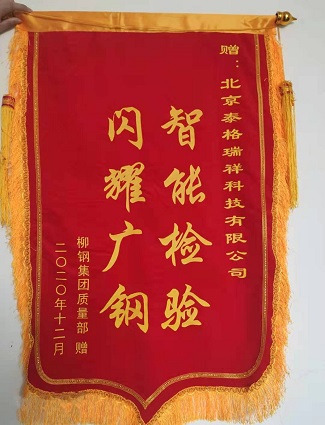 赠：北京泰格瑞祥科技有限公司
智能检验
闪耀广钢
柳钢集团质量部 赠
二〇二〇年十二月